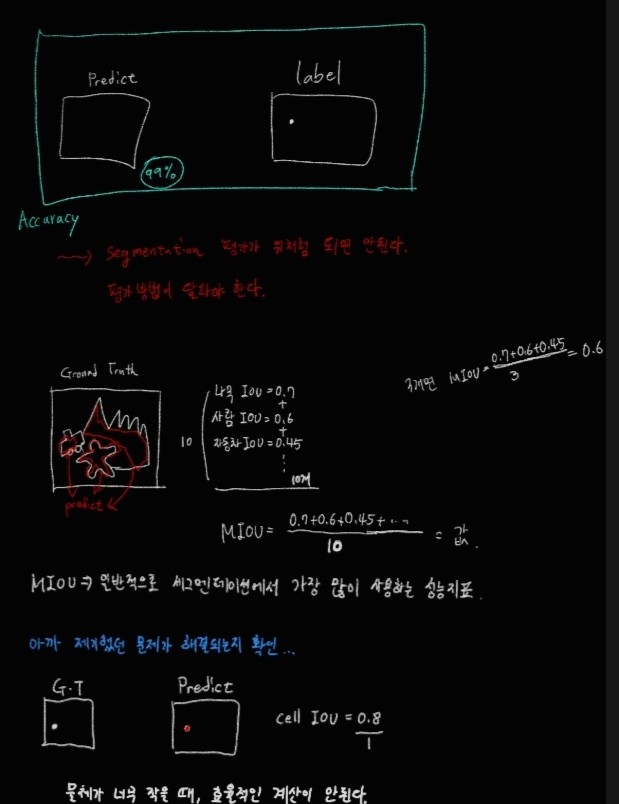 Predict
label
99%
Accuracy
~~> Segmentation 평가가 위처럼 되면 안된다.
평가방법이 달라야 한다.
Ground Truth
predict
10
나무 IOU = 0.7
+
사람 IOU = 0.6
+
자동차 IOU = 0.45
⋮
10개
3개면 MIOU = 0.7+0.6+0.45 / 3 = 0.6
MIOU = 0.7+0.6+0.45+... / 10 = 값.
MIOU ⇒ 일반적으로 세그멘테이션에서 가장 많이 사용하는 성능지표.
아까 제기했던 문제가 해결되는지 확인...
G.T
Predict
cell IOU = 0.8 / 1
물체가 너무 작을 때, 효율적인 계산이 안된다.